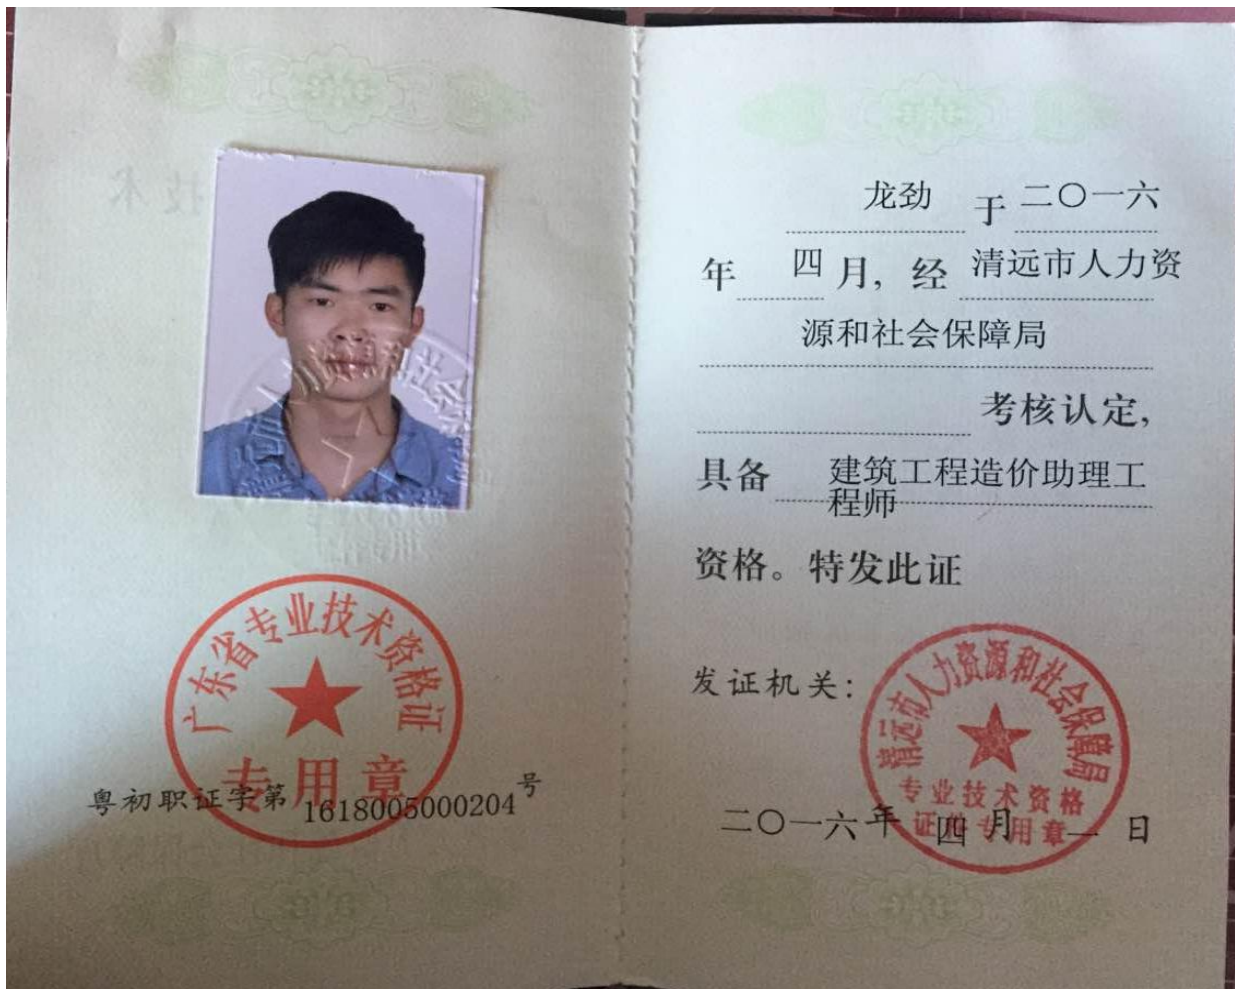 广东省专业技术资格证
专用章
粤初职证字第 1618005000204 号
龙劲 于 二〇一六
年 四 月, 经 清远市人力资
源和社会保障局
考核认定,
具备 建筑工程造价助理工
程师
资格。特发此证
发证机关:
清远市人力资源和社会保障局
专业技术资格
证件专用章
二〇一六 年 四 月 一 日